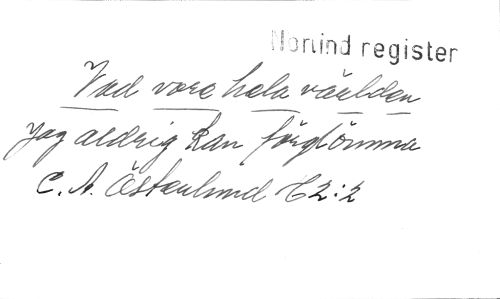 Norlind register
Vad vore hela världen
Jag aldrig kan förglömma
C. A. Österlund C2:2